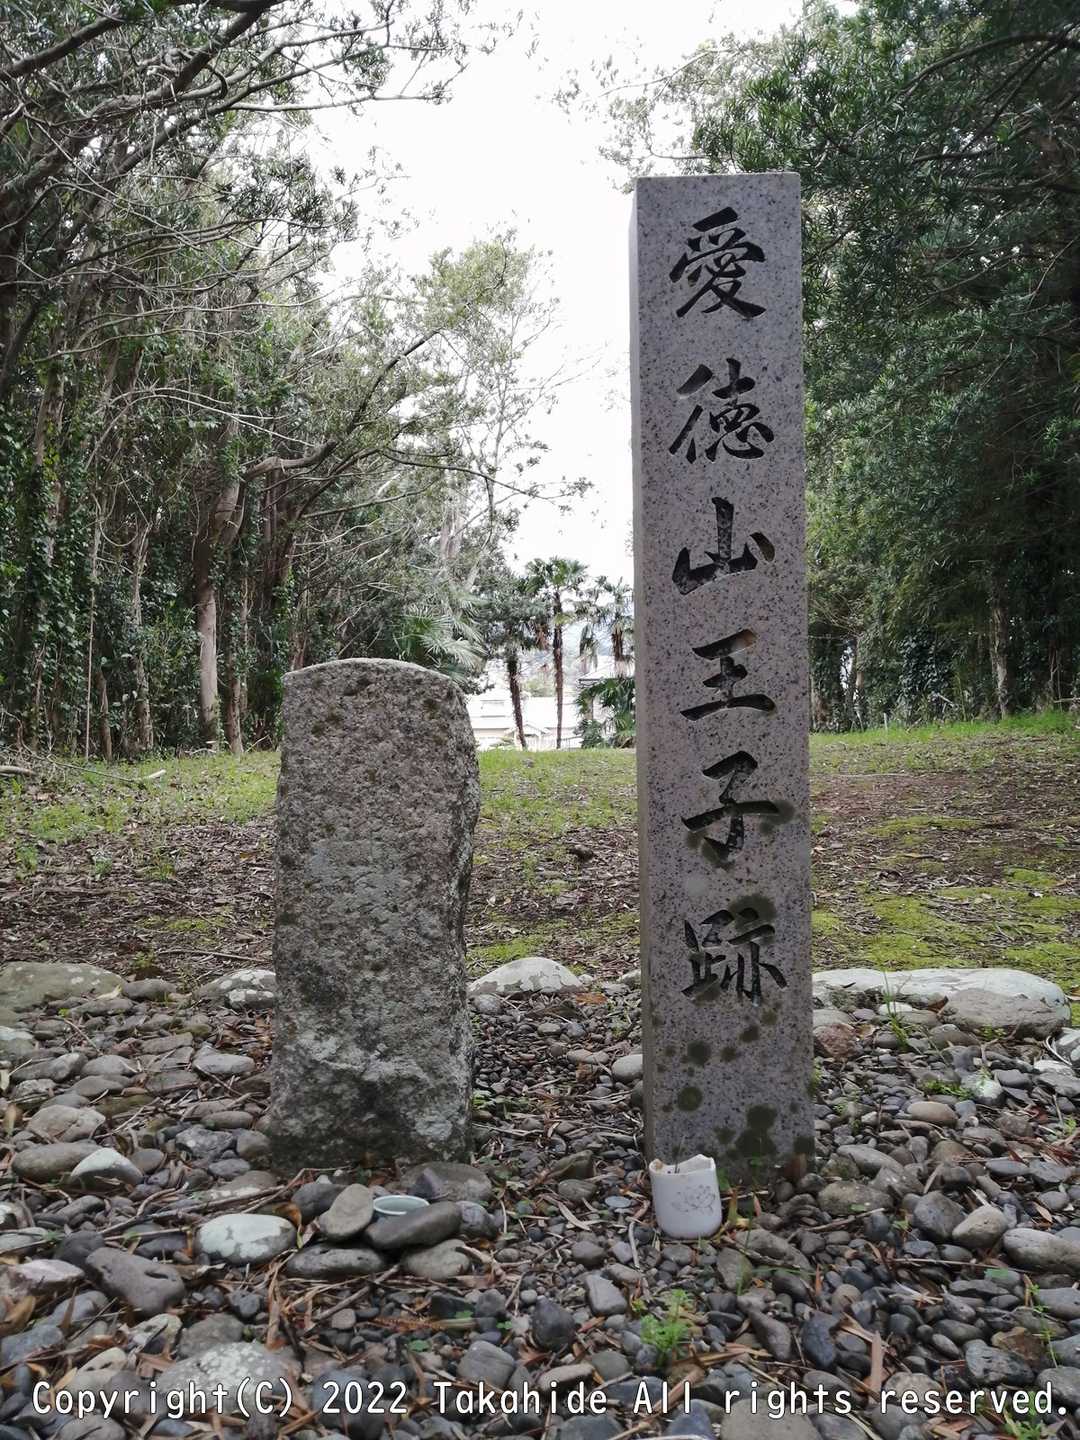 愛徳山王子跡
Copyright(C) 2022 Takahide All rights reserved.